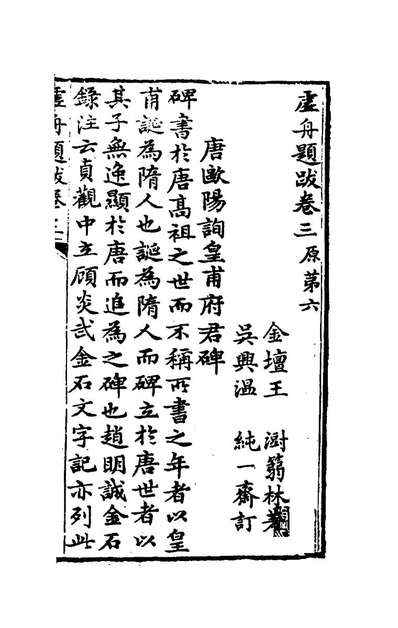 虛舟題跋卷三原第六
金壇王　澍篛林著
吳興温　純一齋訂
唐歐陽詢皇甫府君碑
碑書於唐髙祖之世而不稱所書之年者以皇
甫誕為隋人也誕為隋人而碑立於唐世者以
其子無逸顯於唐而追為之碑也趙明誠金石
錄注云貞觀中立顧炎武金石文字記亦列此
虛舟題跋卷三